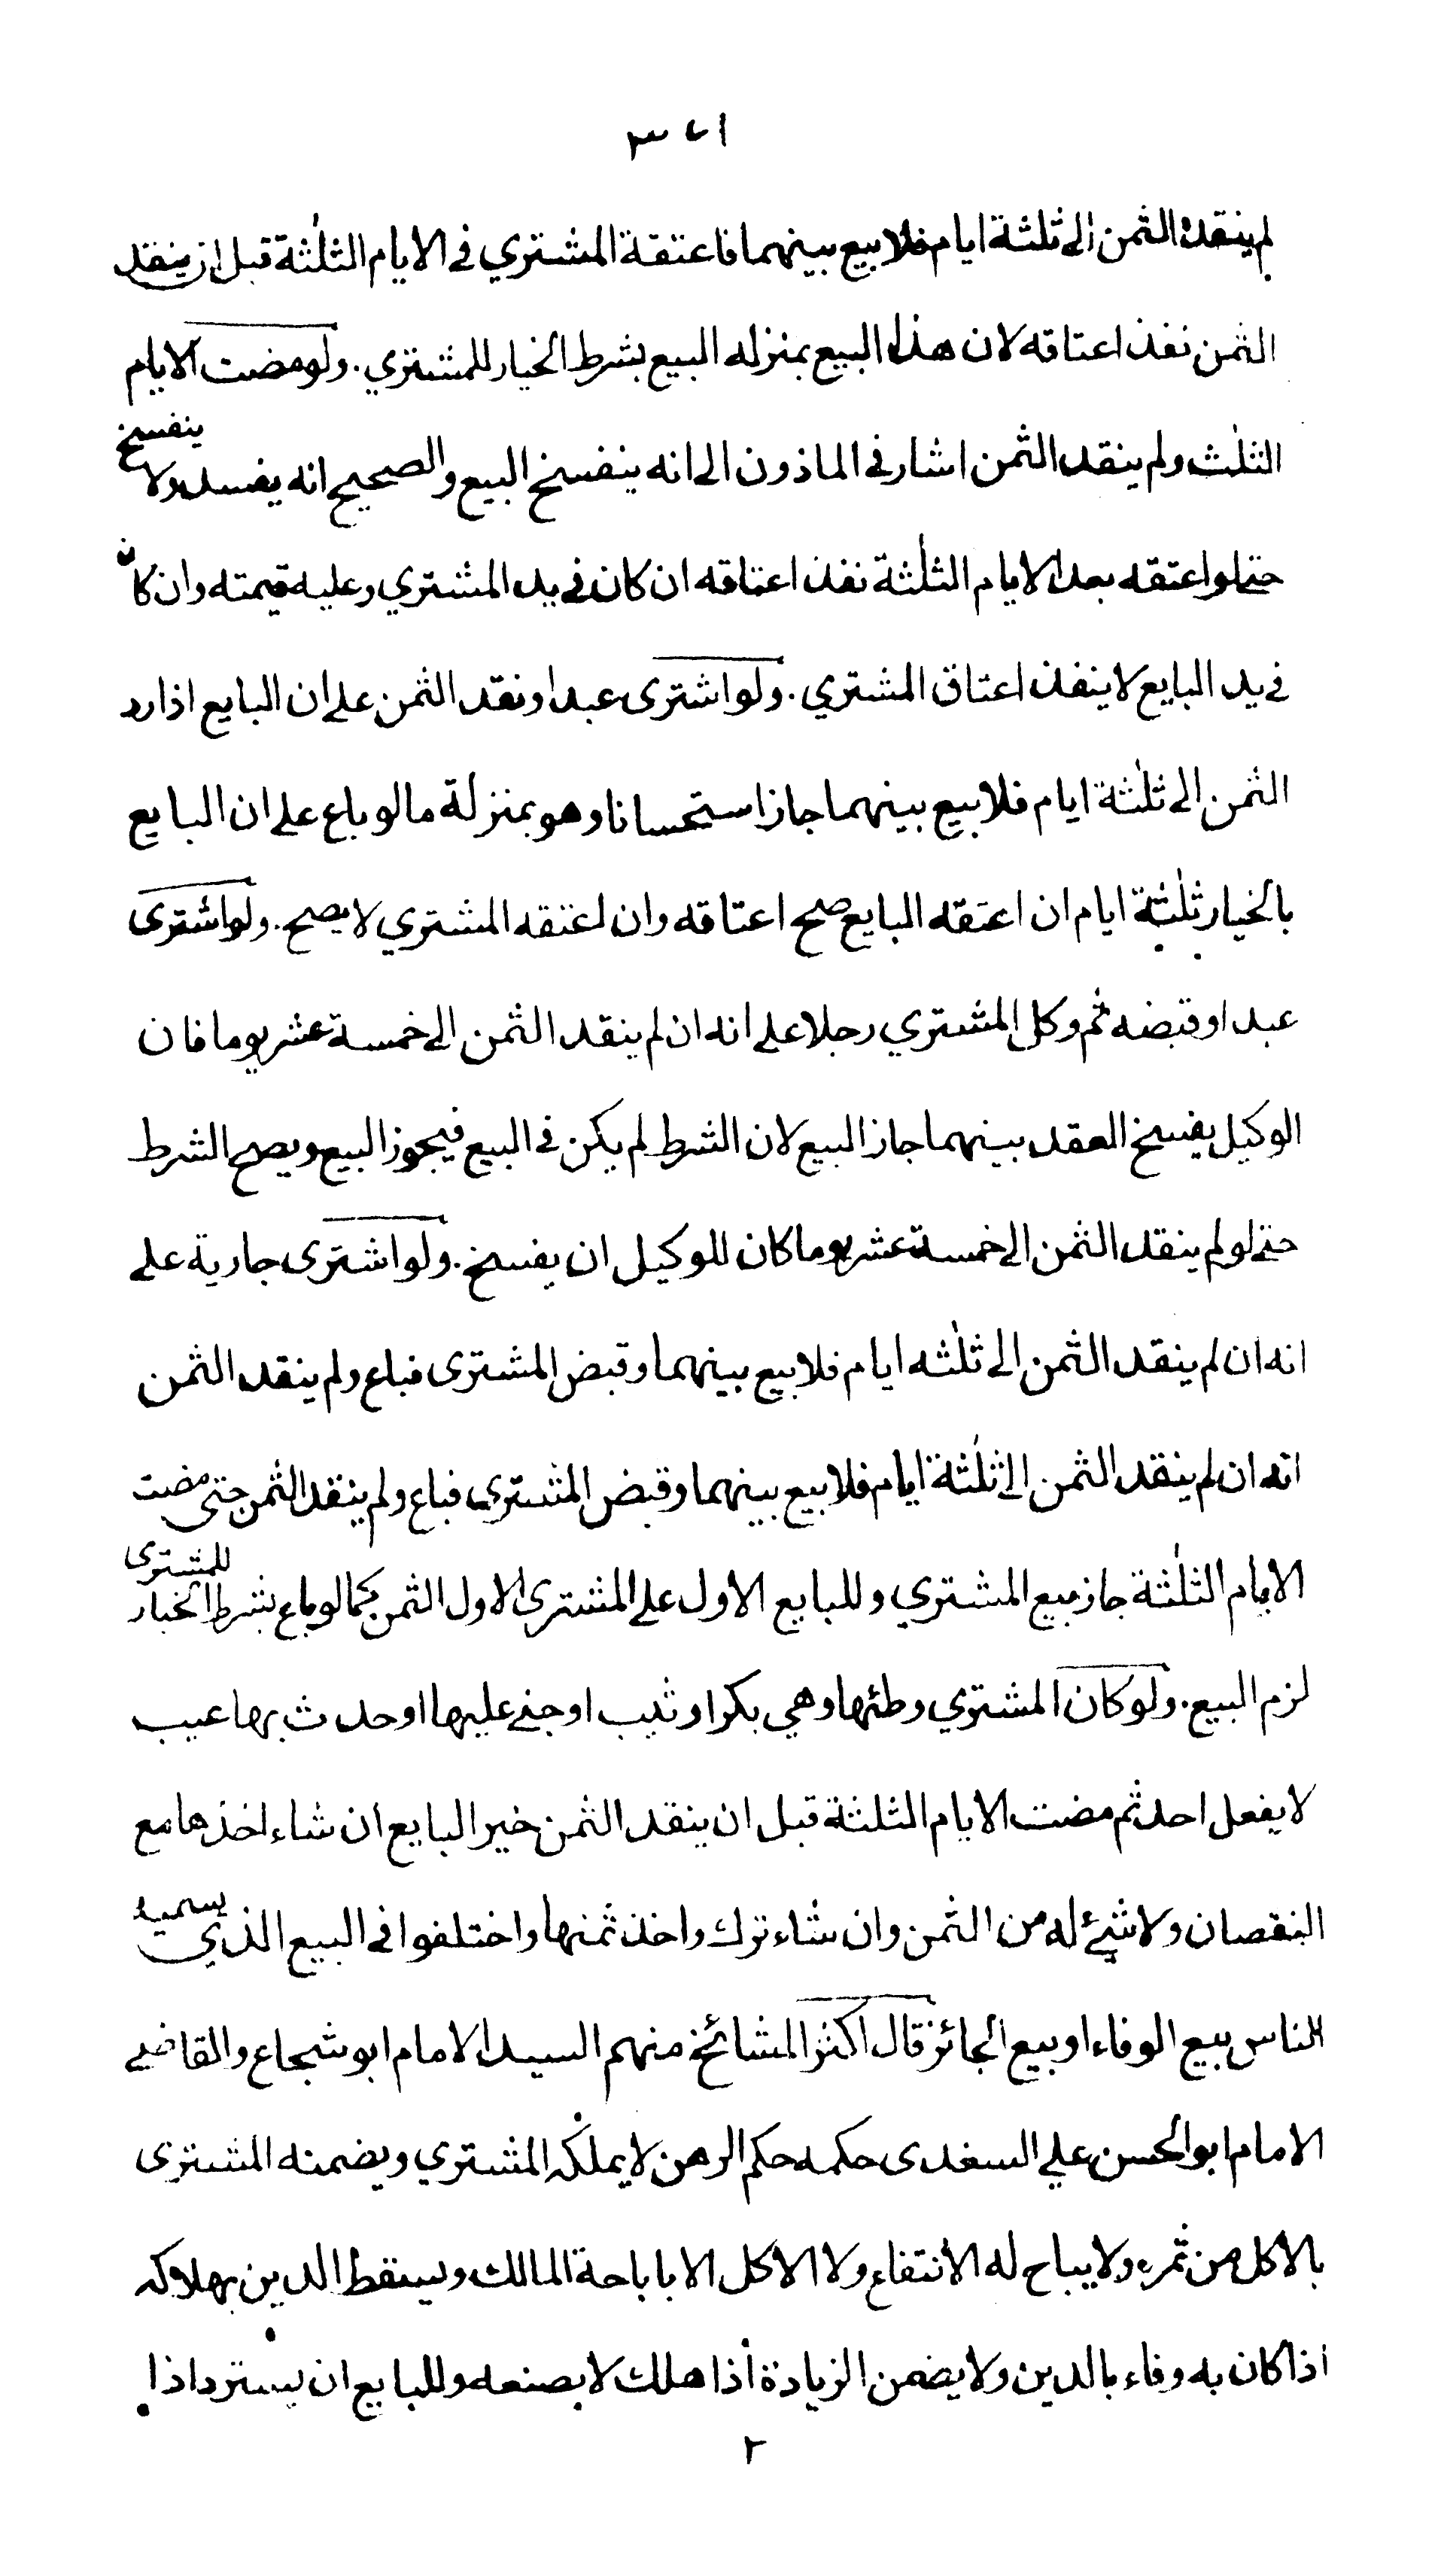 ١٧٣
لم ينقد الثمن الى ثلٰثة ايام فلا بيع بينهما فاعتقة المشتري في الايام الثلٰثة قبل ان ينقد
الثمن نفذ اعتاقه لان هذا البيع بمنزله البيع بشرط الخيار للمشتري. ولو مضت الايام
الثلٰث ولم ينقد الثمن اشار في الماذون الى انه ينفسخ البيع والصحيح انه يفسد ولا ينفسخ
حتى لو اعتقه بعد الايام الثلٰثة نفذ اعتاقه ان كان في يد المشتري وعليه قيمته وان كان
في يد البايع لا ينفذ اعتاق المشتري. ولو اشترى عبدا ونقد الثمن على ان البايع اذا رد
الثمن الى ثلٰثة ايام فلا بيع بينهما جاز استحسانا وهو بمنزلة ما لو باع على ان البايع
بالخيار ثلٰثة ايام ان اعتقه البايع صح اعتاقه وان اعتقه المشتري لا يصح. ولو اشترى
عبدا وقبضه ثم وكل المشتري رجلا على انه ان لم ينقد الثمن الى خمسة عشر يوما فان
الوكيل يفسخ العقد بينهما جاز البيع لان الشرط لم يكن في البيع فيجوز البيع ويصح الشرط
حتى لو لم ينقد الثمن الى خمسة عشر يوما كان للوكيل ان يفسخ. ولو اشترى جارية على
انه ان لم ينقد الثمن الى ثلٰثه ايام فلا بيع بينهما وقبض المشترى فباع ولم ينقد الثمن
انه ان لم ينقد الثمن الى ثلٰثة ايام فلا بيع بينهما وقبض المشتري فباع ولم ينقد الثمن حتى مضت
الايام الثلٰثة جاز مبيع المشتري وللبايع الاول على المشترى الاول الثمن كما لو باع بشرط الخيار للمشترى
لزم البيع. ولو كان المشتري وطئها وهي بكر او ثيب او جنى عليها او حدث بها عيب
لا يفعل احد ثم مضت الايام الثلثة قبل ان ينقد الثمن خير البايع ان شاء اخذها مع
النقصان ولا شئ له من الثمن وان شاء ترك واخذ ثمنها واختلفوا في البيع الذي يسميه
الناس بيع الوفاء او بيع الجائز قال اكثر المشائخ منهم السيد الامام ابو شجاع والقاضي
الامام ابو الحسن علي السغدى حكمه حكم الرهن لا يملكه المشتري ويضمنه المشترى
بالاكل من ثمره ولا يباح له الانتفاع ولا الاكل الا باباحة المالك ويسقط الدين بهلاكه
اذا كان به وفاء بالدين ولا يضمن الزيادة اذا هلك لا بصنعه وللبايع ان يسترد اذا
٢